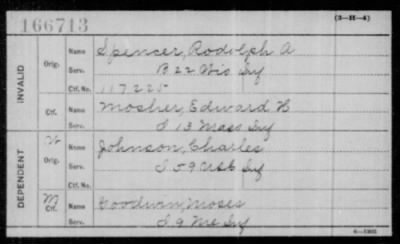 166713
(3-H-4)
INVALID
Orig. Name Spencer, Rodolph A
Serv. B 22 Wis Inf
Ctf. No. 117225
Ctf. Name Mosher, Edward H
Serv. I 13 Mass Inf
DEPENDENT
W Orig. Name Johnson, Charles
Serv. I 59 Inf
Ctf. No.
M Ctf. Name Goodwin, Moses
Serv. I 9 Me Inf